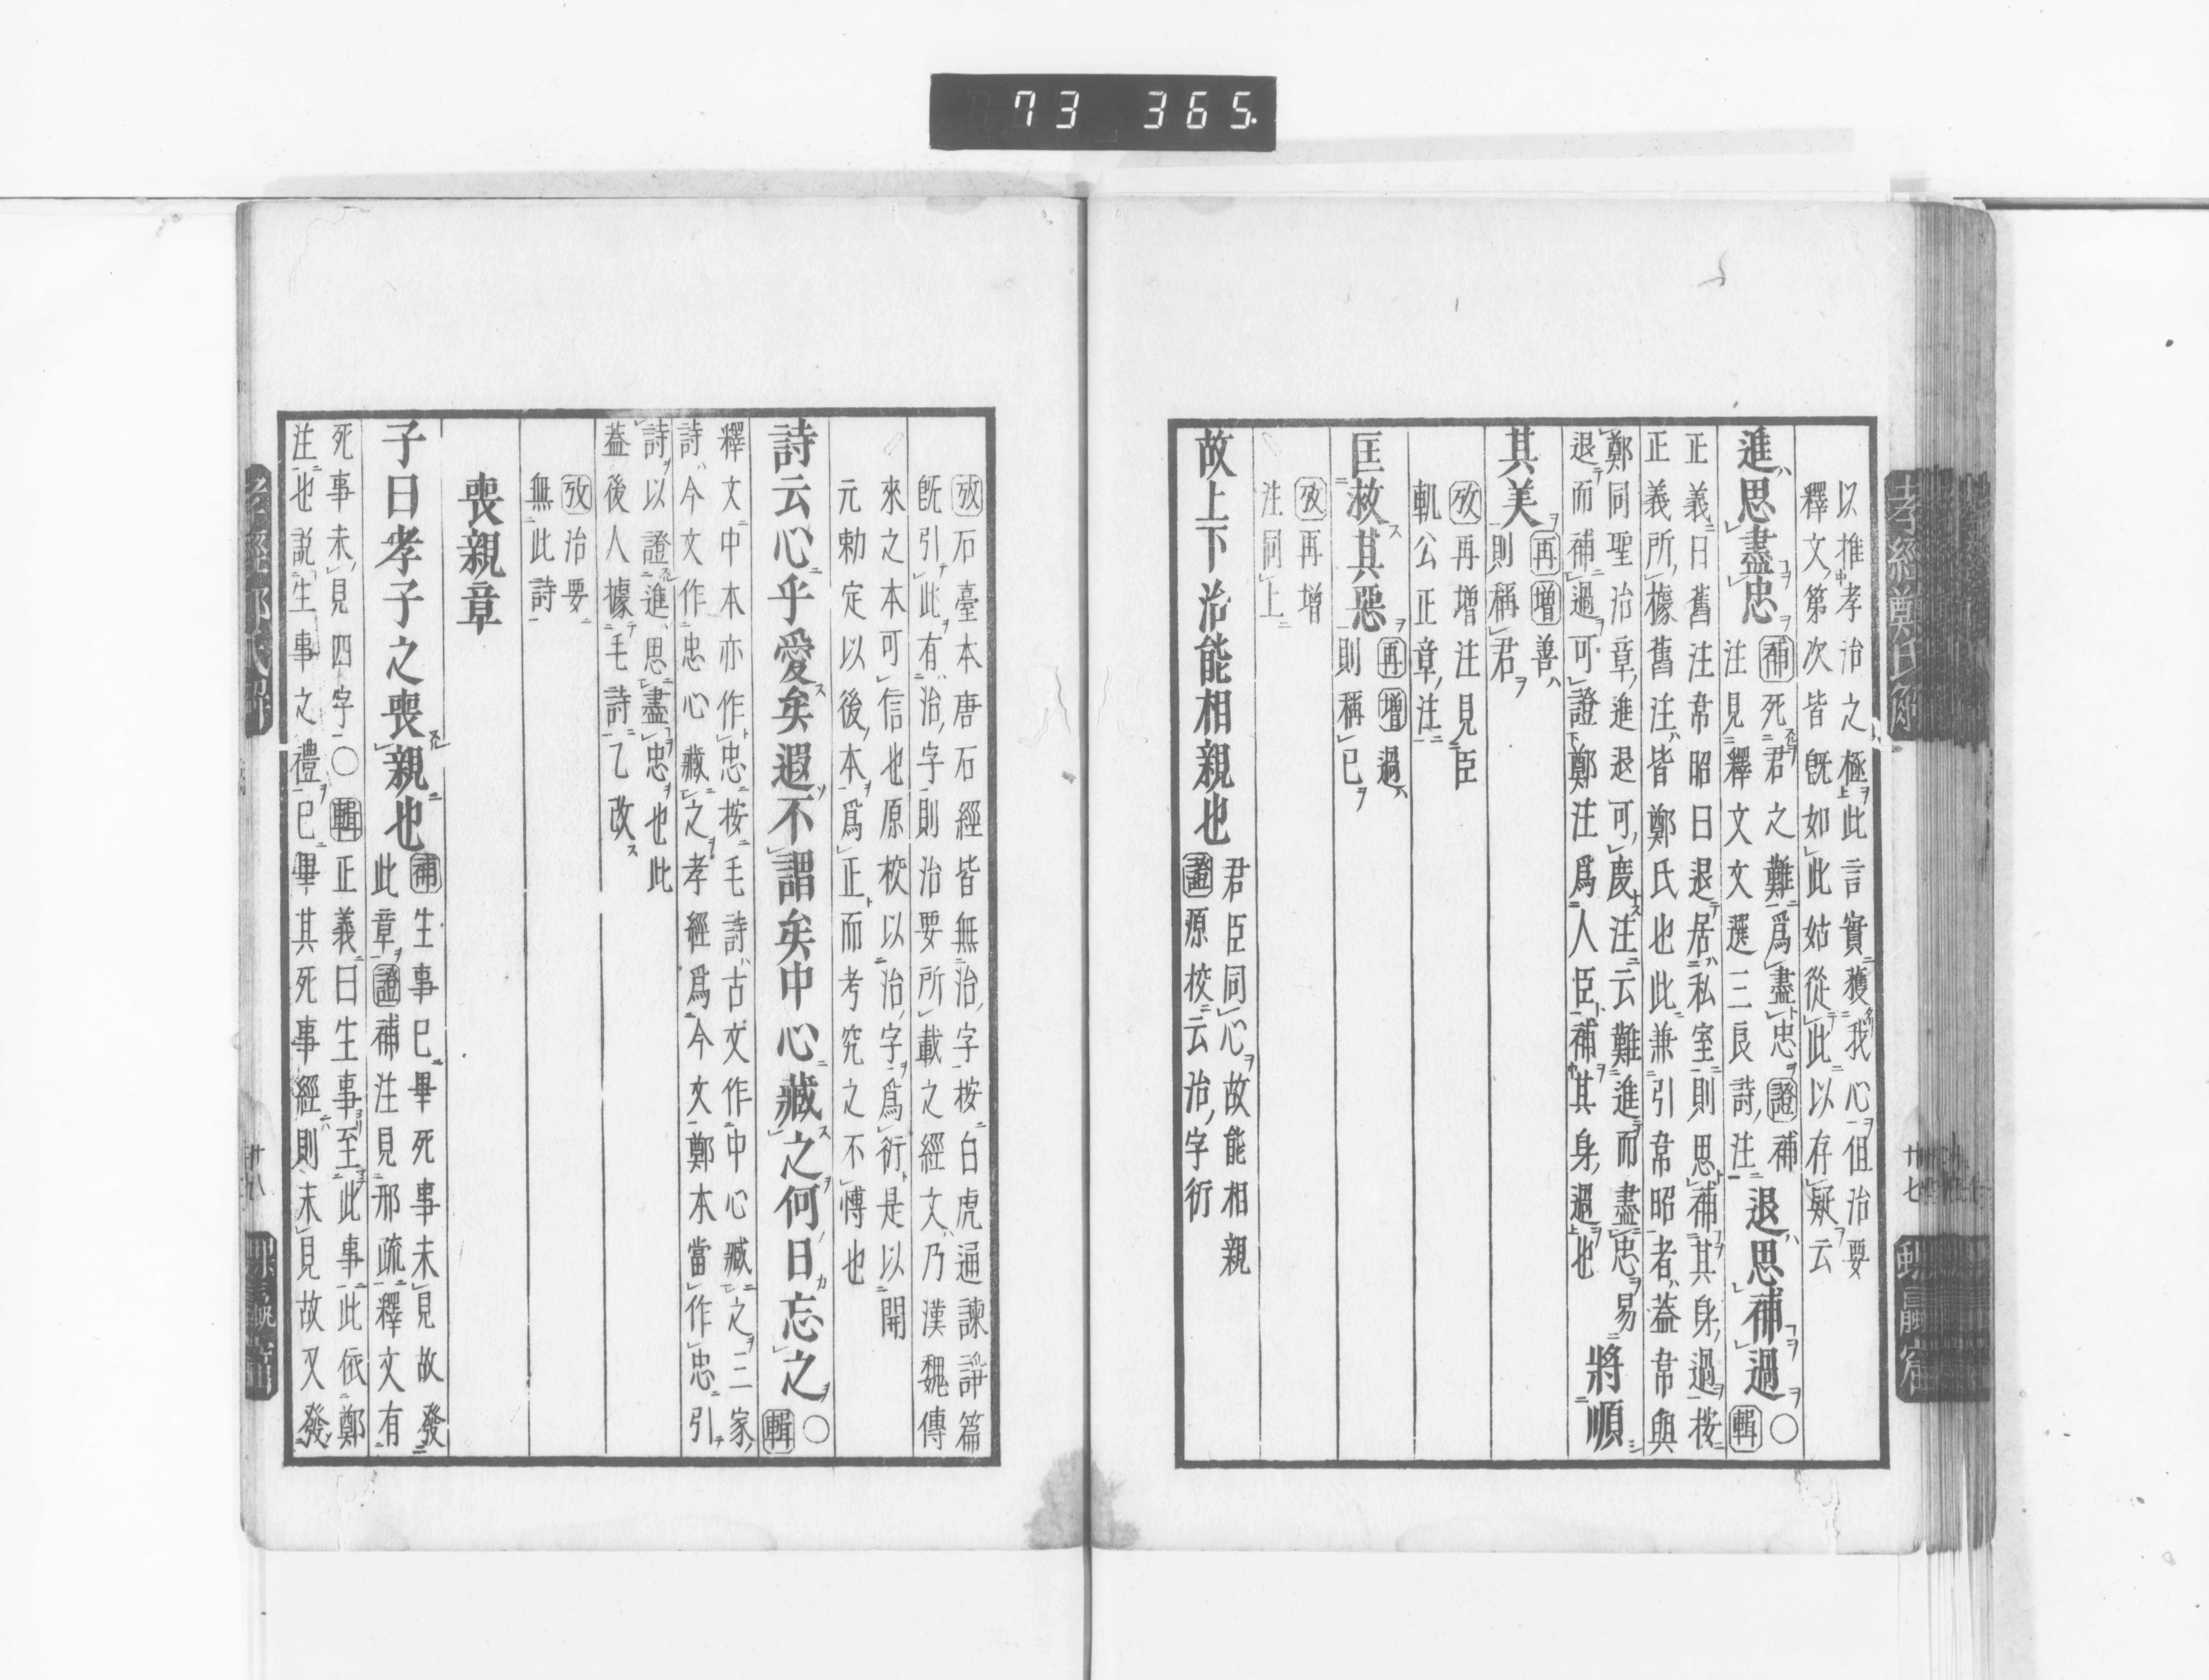 73 365.
以推孝治之極此言實獲我心但治要
釋文第次皆既如此姑從此以存疑云
進思盡忠
補死君之難爲盡忠證補
注見釋文文選三良詩注
退思補過
○輯
正義曰舊注韋昭曰退居私室則思補其身過按
正義所據舊注皆鄭氏也此兼引韋昭者蓋韋與
鄭同聖治章進退可慶注云難進而盡忠易
退而補過可證鄭注爲人臣補其身過也
將順
其美
再增善
則稱君
攷再增注見臣
軌公正章注
匡救其惡
再增過
則稱己
攷再增
注同上
故上下治能相親也
君臣同心故能相親
證源校云治字衍
孝經鄭氏解
廿七
攷石臺本唐石經皆無治字按白虎通諫諍篇
既引此有治字則治要所載之經文乃漢魏傳
來之本可信也原校以治字爲衍是以開
元勅定以後本爲正而考究之不博也
詩云心乎愛矣遐不謂矣中心藏之何日忘之
○輯
釋文中本亦作忠按毛詩古文作中心臧之三家
詩今文作忠心藏之孝經爲今文鄭本當作忠引
詩以證進思盡忠也此
蓋後人據毛詩乙改
攷治要
無此詩
喪親章
子曰孝子之喪親也
補生事已畢死事未見故發
此章證補注見邢疏釋文有
死事未見四字○輯正義曰生事至此事此依鄭
注也説生事之禮已畢其死事經則未見故又發
孝經鄭氏解
廿八